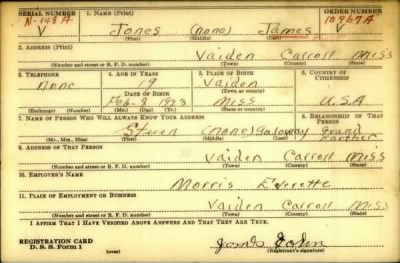 SERIAL NUMBER 1. NAME (Print) ORDER NUMBER
N-148A Jones (none) James 10967A
V (First) (Middle) (Last) V
2. ADDRESS (Print)
Vaiden Carroll Miss
(Number and street or R. F. D. number) (Town) (County) (State)
3. TELEPHONE 4. AGE IN YEARS 5. PLACE OF BIRTH 6. COUNTRY OF CITIZENSHIP
none 19 Vaiden
DATE OF BIRTH (Town or county)
Feb-8 1923 Miss U.S.A
(Exchange) (Number) (Mo.) (Day) (Yr.) (State or country)
7. NAME OF PERSON WHO WILL ALWAYS KNOW YOUR ADDRESS 8. RELATIONSHIP OF THAT PERSON
(none) Galoway Grand Farther
(Mr., Mrs., Miss) (First) (Middle) (Last)
9. ADDRESS OF THAT PERSON
Vaiden Carroll Miss
(Number and street or R. F. D. number) (Town) (County) (State)
10. EMPLOYER'S NAME
Morris Everette
11. PLACE OF EMPLOYMENT OR BUSINESS
Vaiden Carroll Miss
(Number and street or R. F. D. number) (Town) (County) (State)
I AFFIRM THAT I HAVE VERIFIED ABOVE ANSWERS AND THAT THEY ARE TRUE.
REGISTRATION CARD
D. S. S. Form 1 (over) John
(Registrant's signature)